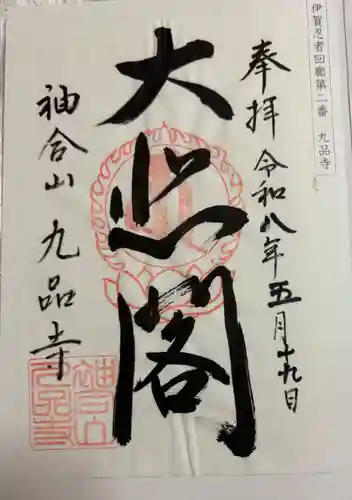 伊賀忍者回廊第二番 九品寺
奉拝 令和八年五月十九日
大悲閣
袖合山 九品寺